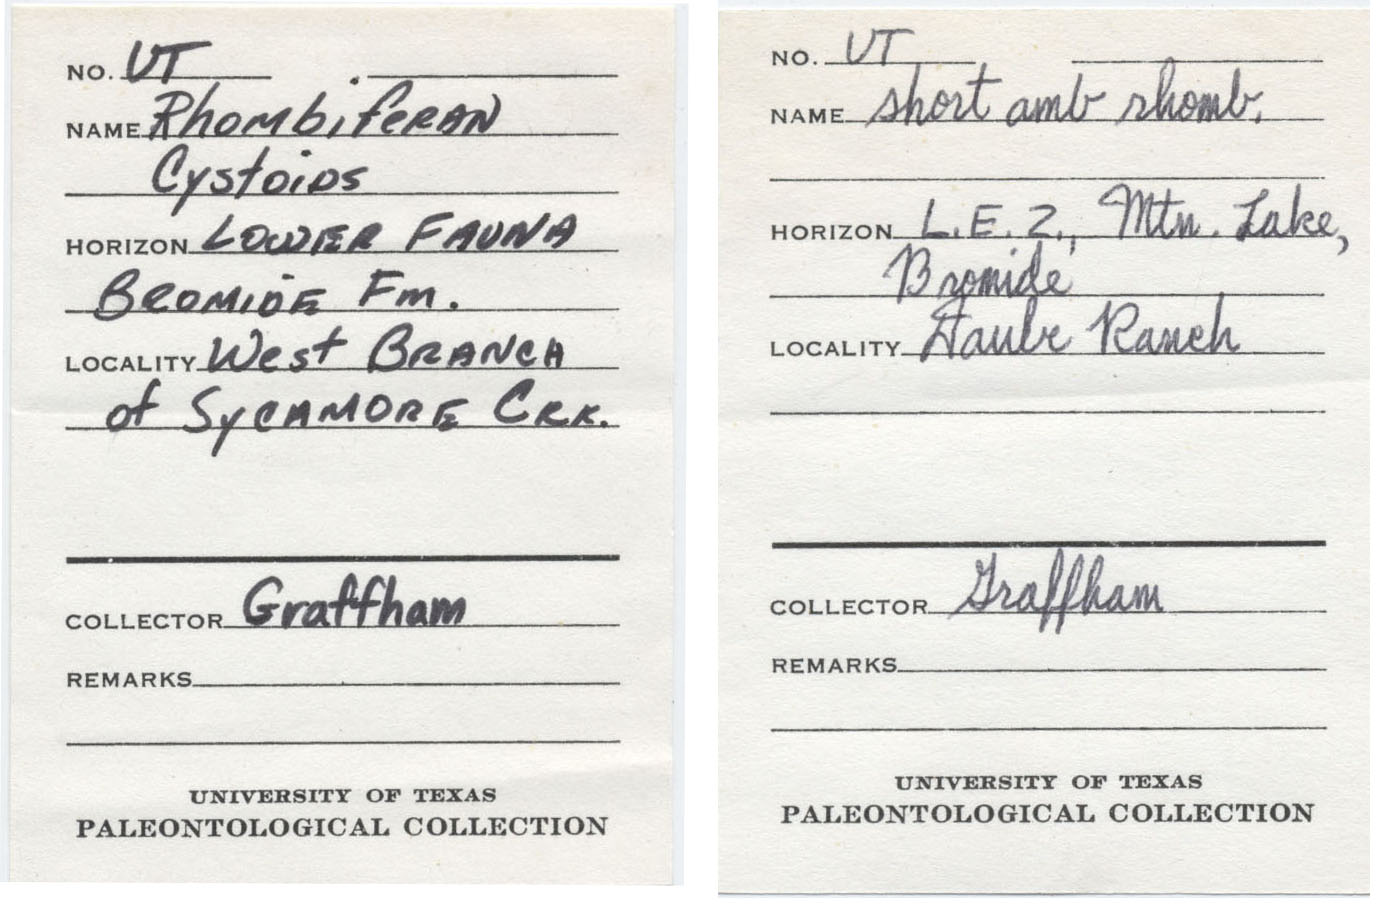 NO. UT
NAME Rhombiferan
Cystoids
HORIZON Lower Fauna
Bromide Fm.
LOCALITY West Branch
of Sycamore Crk.
COLLECTOR Graffham
REMARKS
UNIVERSITY OF TEXAS
PALEONTOLOGICAL COLLECTION
NO. UT
NAME short amb rhomb.
HORIZON L.E.Z., Mtn. Lake,
Bromide
LOCALITY Daube Ranch
COLLECTOR Graffham
REMARKS
UNIVERSITY OF TEXAS
PALEONTOLOGICAL COLLECTION